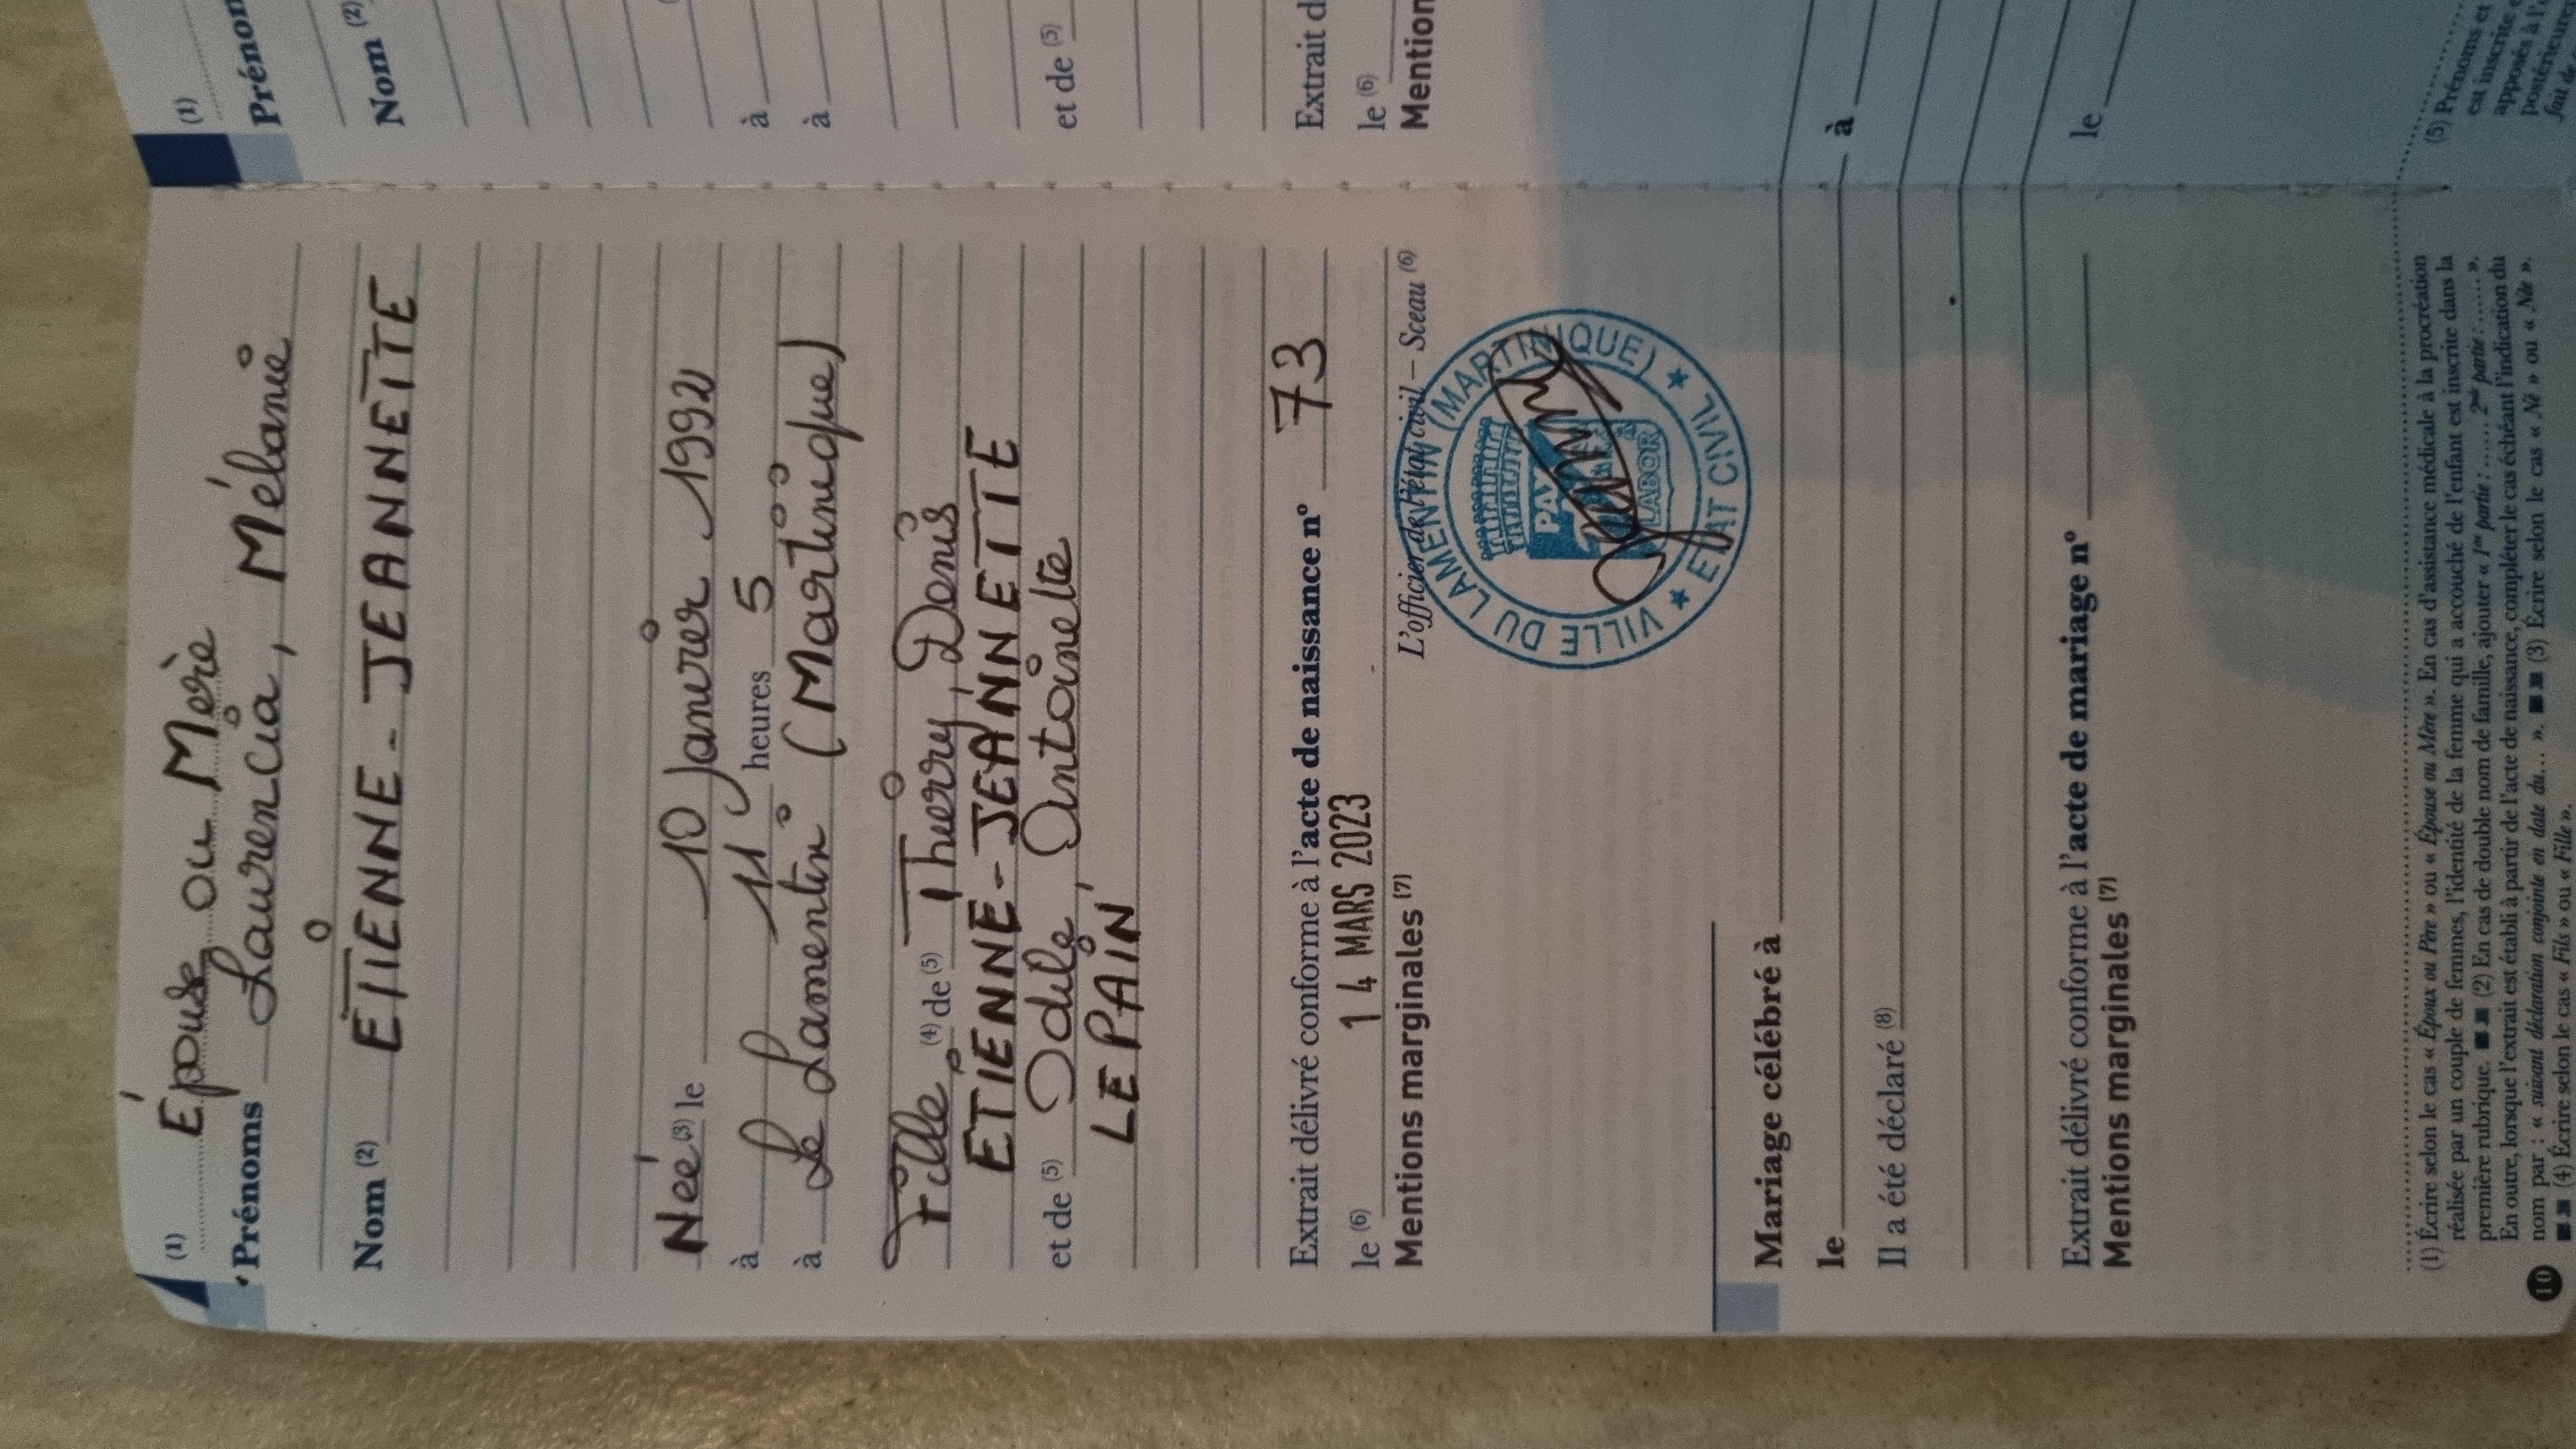 (1) Épouse ou Mère
Prénoms Laurencia, Mélanie
Nom (2) ETIENNE - JEANNETTE
Née (3) le 10 Janvier 1992
à 11 heures 5
à Le Lamentin (Martinique)
Fille (4) de (5) Thierry, Denis
ETIENNE - JEANNETTE
et de (5) Odile, Antoinette
LEPAIN
Extrait délivré conforme à l'acte de naissance n° 73
le (6) 14 MARS 2023
L'officier de l'état civil – Sceau (6)
Mentions marginales (7)
VILLE DU LAMENTIN (MARTINIQUE)
LABOR
★ ETAT CIVIL ★
Mariage célébré à
le à
Il a été déclaré (8)
Extrait délivré conforme à l'acte de mariage n° le
Mentions marginales (7)
(1) Écrire selon le cas « Époux ou Père » ou « Épouse ou Mère ». En cas d'assistance médicale à la procréation
réalisée par un couple de femmes, l'identité de la femme qui a accouché de l'enfant est inscrite dans la
première rubrique. ■■ (2) En cas de double nom de famille, ajouter « 1re partie : ...... 2nde partie : ...... ».
En outre, lorsque l'extrait est établi à partir de l'acte de naissance, compléter le cas échéant l'indication du
nom par : « suivant déclaration conjointe en date du... ». ■■ (3) Écrire selon le cas « Né » ou « Née ».
■■ (4) Écrire selon le cas « Fils » ou « Fille ».
10
(1)
Prénom
Nom (2)
à
à
et de (5)
Extrait d
le (6)
Mention
(5) Prénoms et
est inscrite
apposés à l'
postérieure